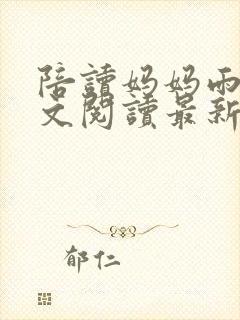 陪讀妈妈雨
文閱讀最新
郁仁